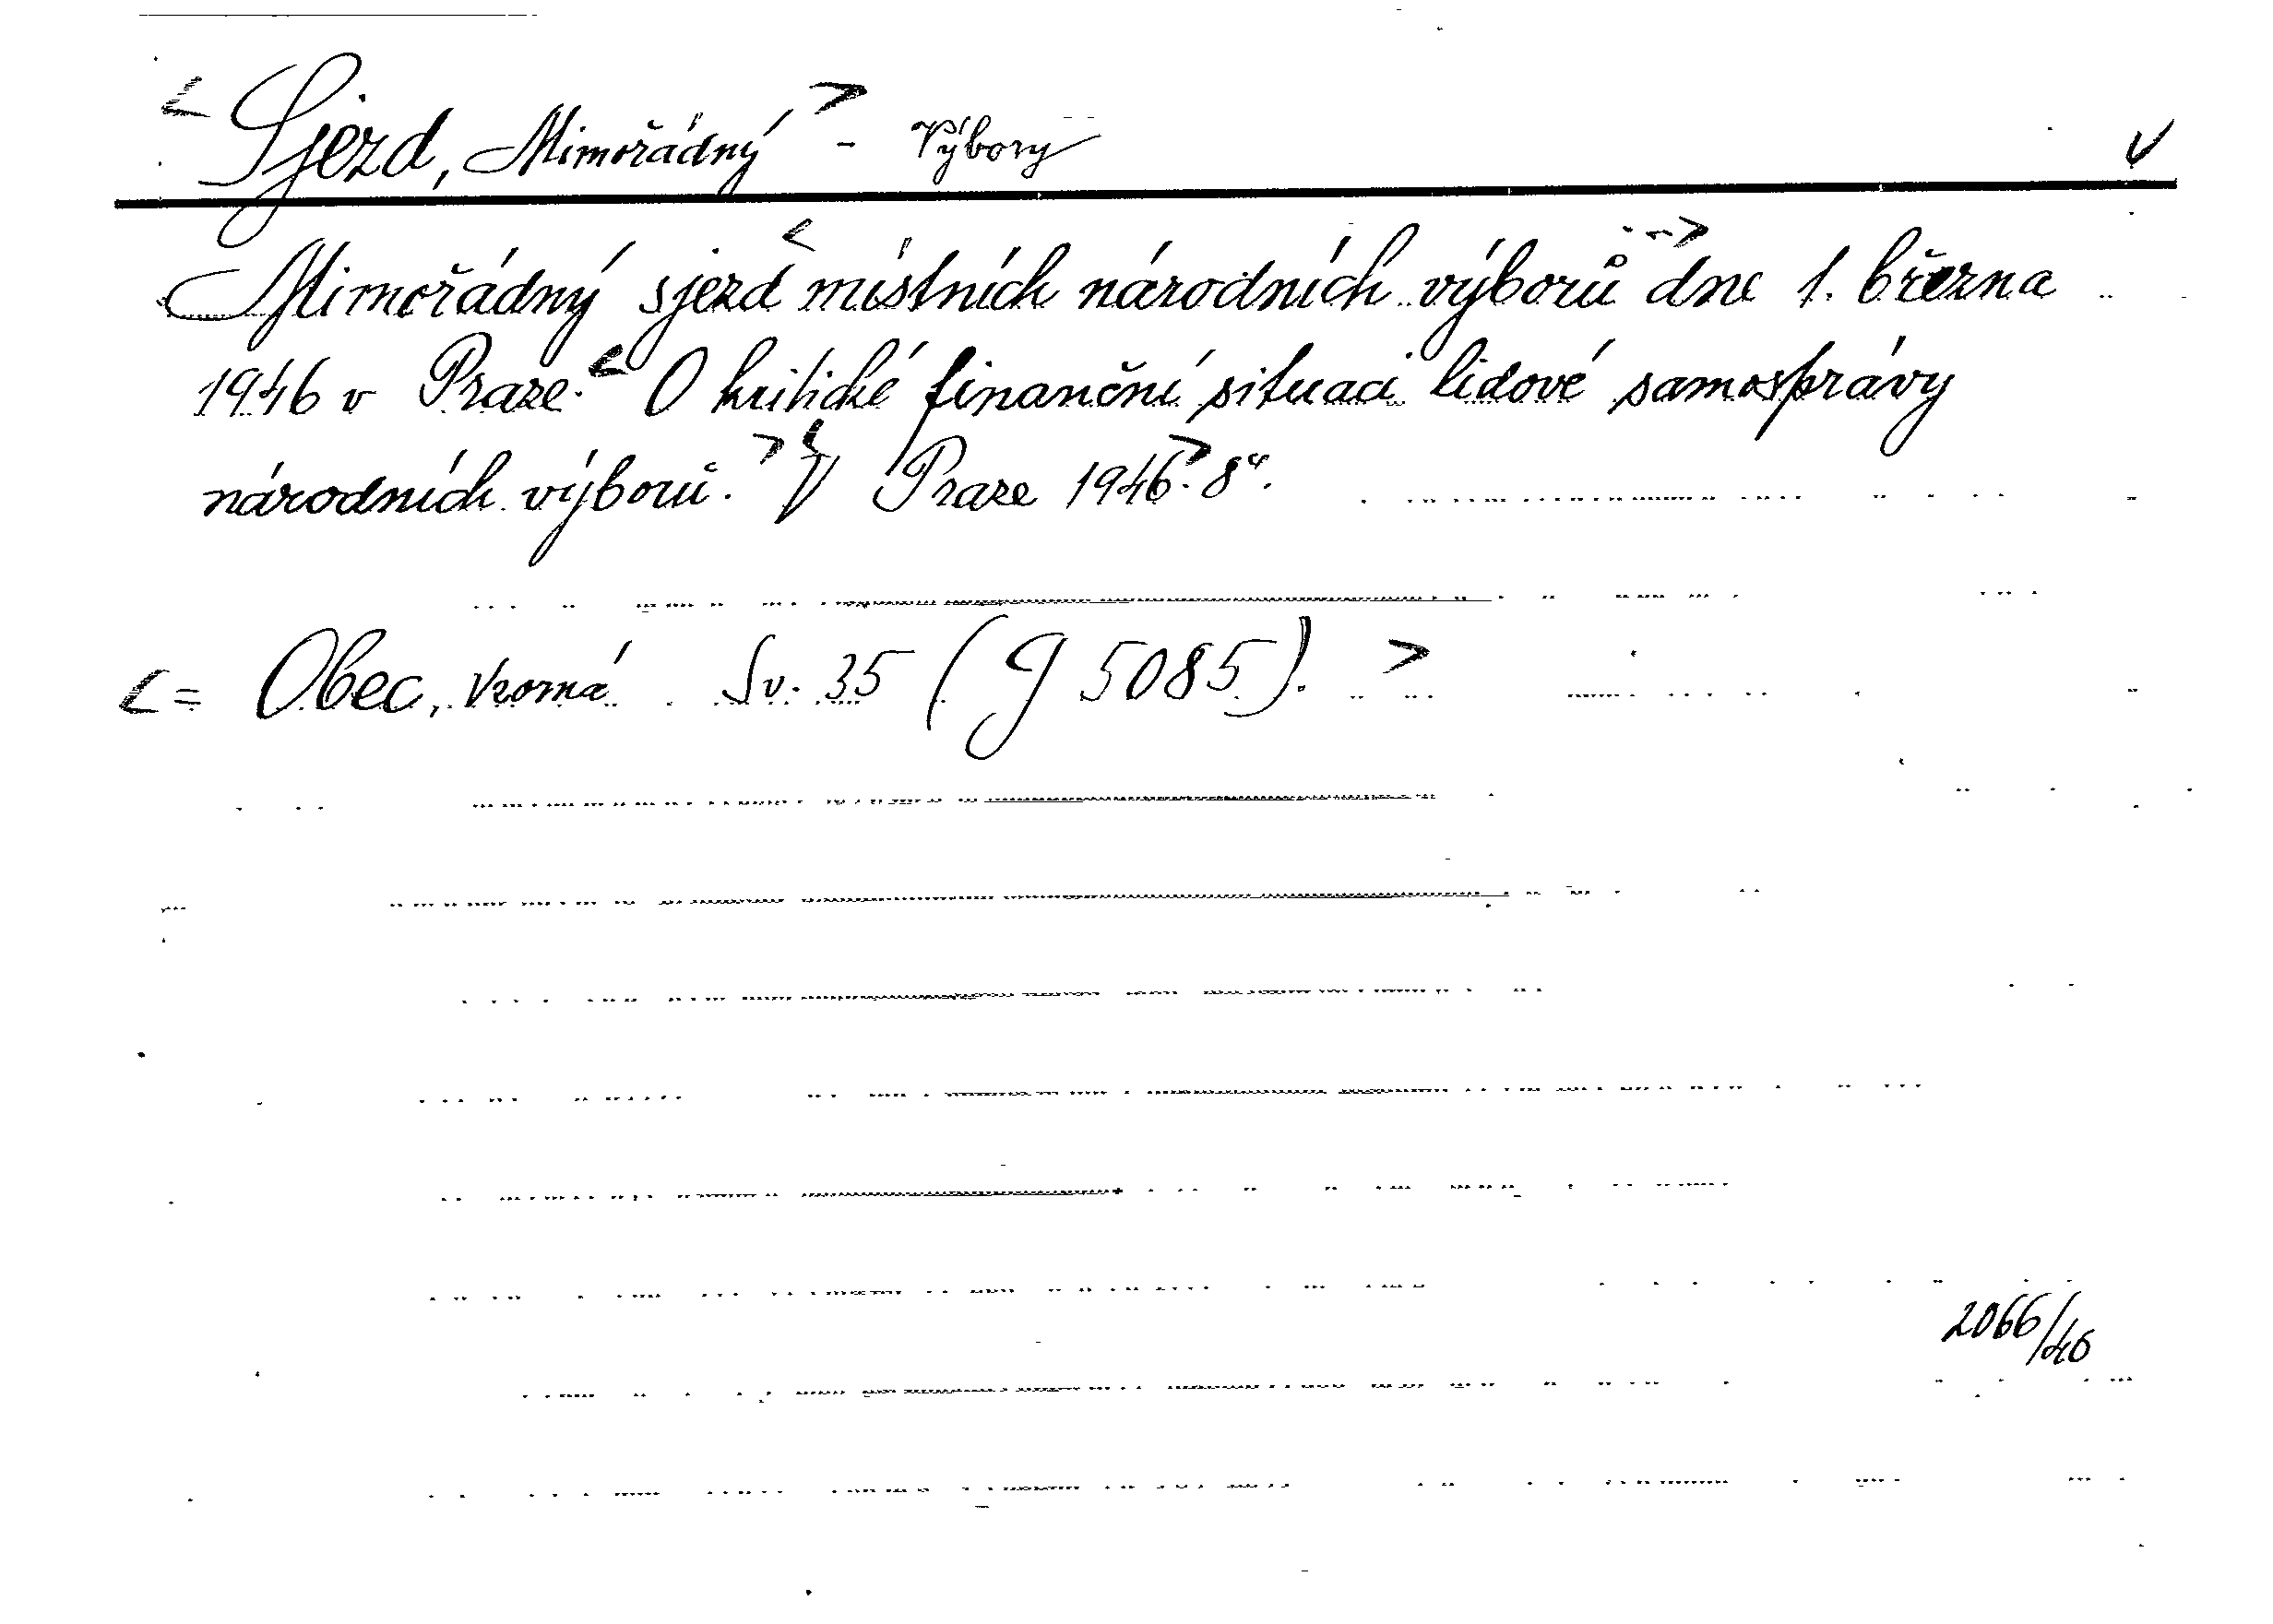 < Sjezd, Mimořádný > - Výbory V
Mimořádný sjezd < místních národních výborů > dne 1. března
1946 v Praze. < O kritické finanční situaci lidové samosprávy
národních výborů. > < V Praze 1946. > 8°.
< = Obec, Vzorná. Sv. 35 (G 5085). >
2066/46